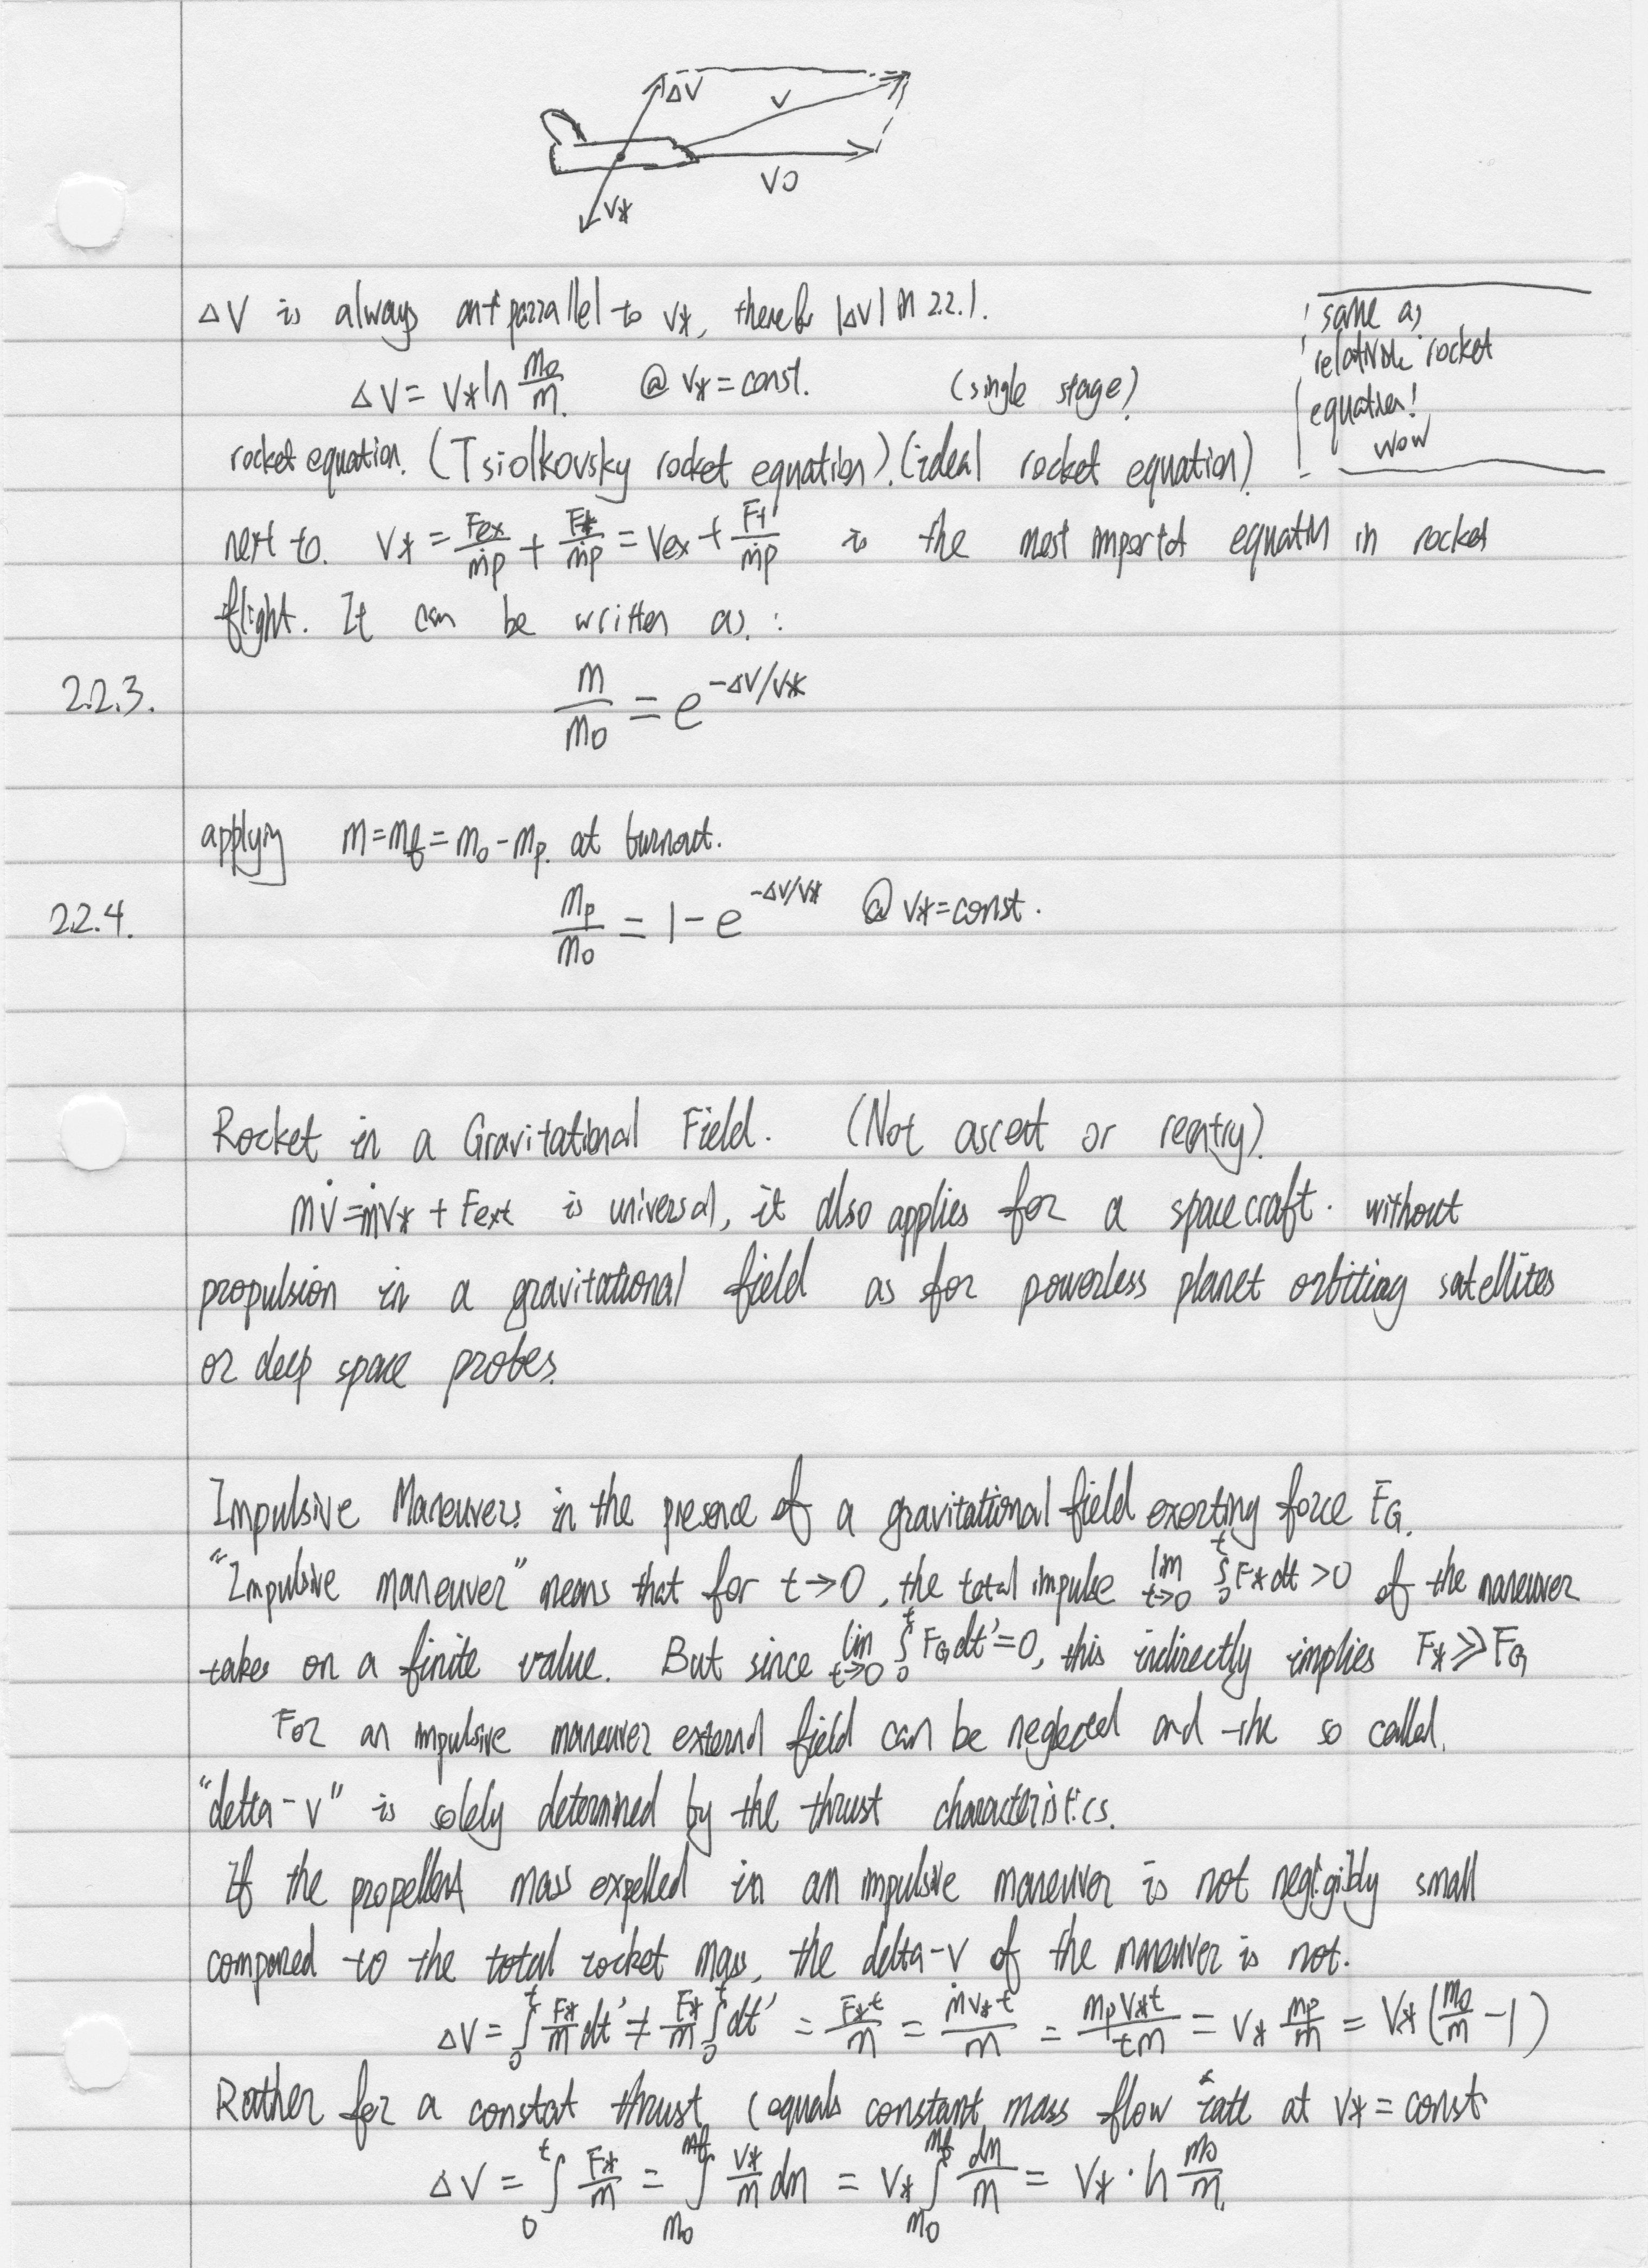 ΔV
V
V0
V*
ΔV is always antiparrallel to V*, |ΔV| in 2.2.1.
ΔV = V* ln m0/m @ V* = const. (single stage)
same as
rocket
equation!
wow
rocket equation. (Tsiolkovsky rocket equation). (ideal rocket equation)
next to. V* = Fex/ṁp + F*/ṁp = Vex + F+/ṁp is the most equation in rocket
flight. It can be written as :
2.2.3. m/m0 = e^(-ΔV/V*)
applying m = mf = m0 - mp. at burnout.
2.2.4. mp/m0 = 1 - e^(-ΔV/V*) @ V* = const.
Rocket in a Gravitational Field. (Not ascent or reentry)
mv̇ = ṁV* + Fext is universal, it also applies for a spacecraft. without
propulsion in a gravitational field as for powerless planet orbiting satellites
or deep space probes.
Impulsive Maneuvers in the presence of a gravitational field exerting force FG.
"Impulsive maneuver" means that for t→0, the total impulse lim t→0 ∫0^t F* dt > 0 of the maneuver
takes on a finite value. But since lim t→0 ∫0^t FG dt' = 0, this indirectly implies F* ≫ FG
For an impulsive maneuver external field can be neglected and the so called.
"delta-v" is solely determined by the thrust characteristics.
If the propellant mass expelled in an impulsive maneuver is not negligibly small
compared to the total rocket mass, the delta-v of the maneuver is not.
ΔV = ∫0^t F*/m dt' ≠ F*/m ∫0^t dt' = F*t/m = ṁV*t/m = mpV*t/tm = V* mp/m = V*(m0/m - 1)
Rather for a constat thrust (equals constant mass flow rate at V* = const
ΔV = ∫0^t F*/m = ∫m0^mf V*/m dm = V* ∫m0^mf dm/m = V* · ln m0/m.